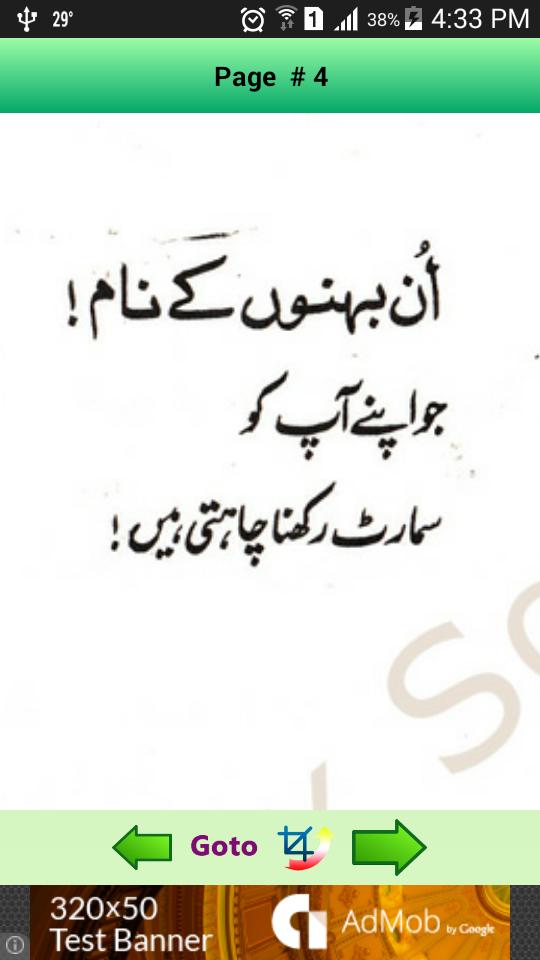 29°
1
38%
4:33 PM
Page # 4
اُن بہنوں کے نام !
جو اپنے آپ کو
سمارٹ رکھنا چاہتی ہیں !
Goto
320×50
Test Banner
AdMob by Google